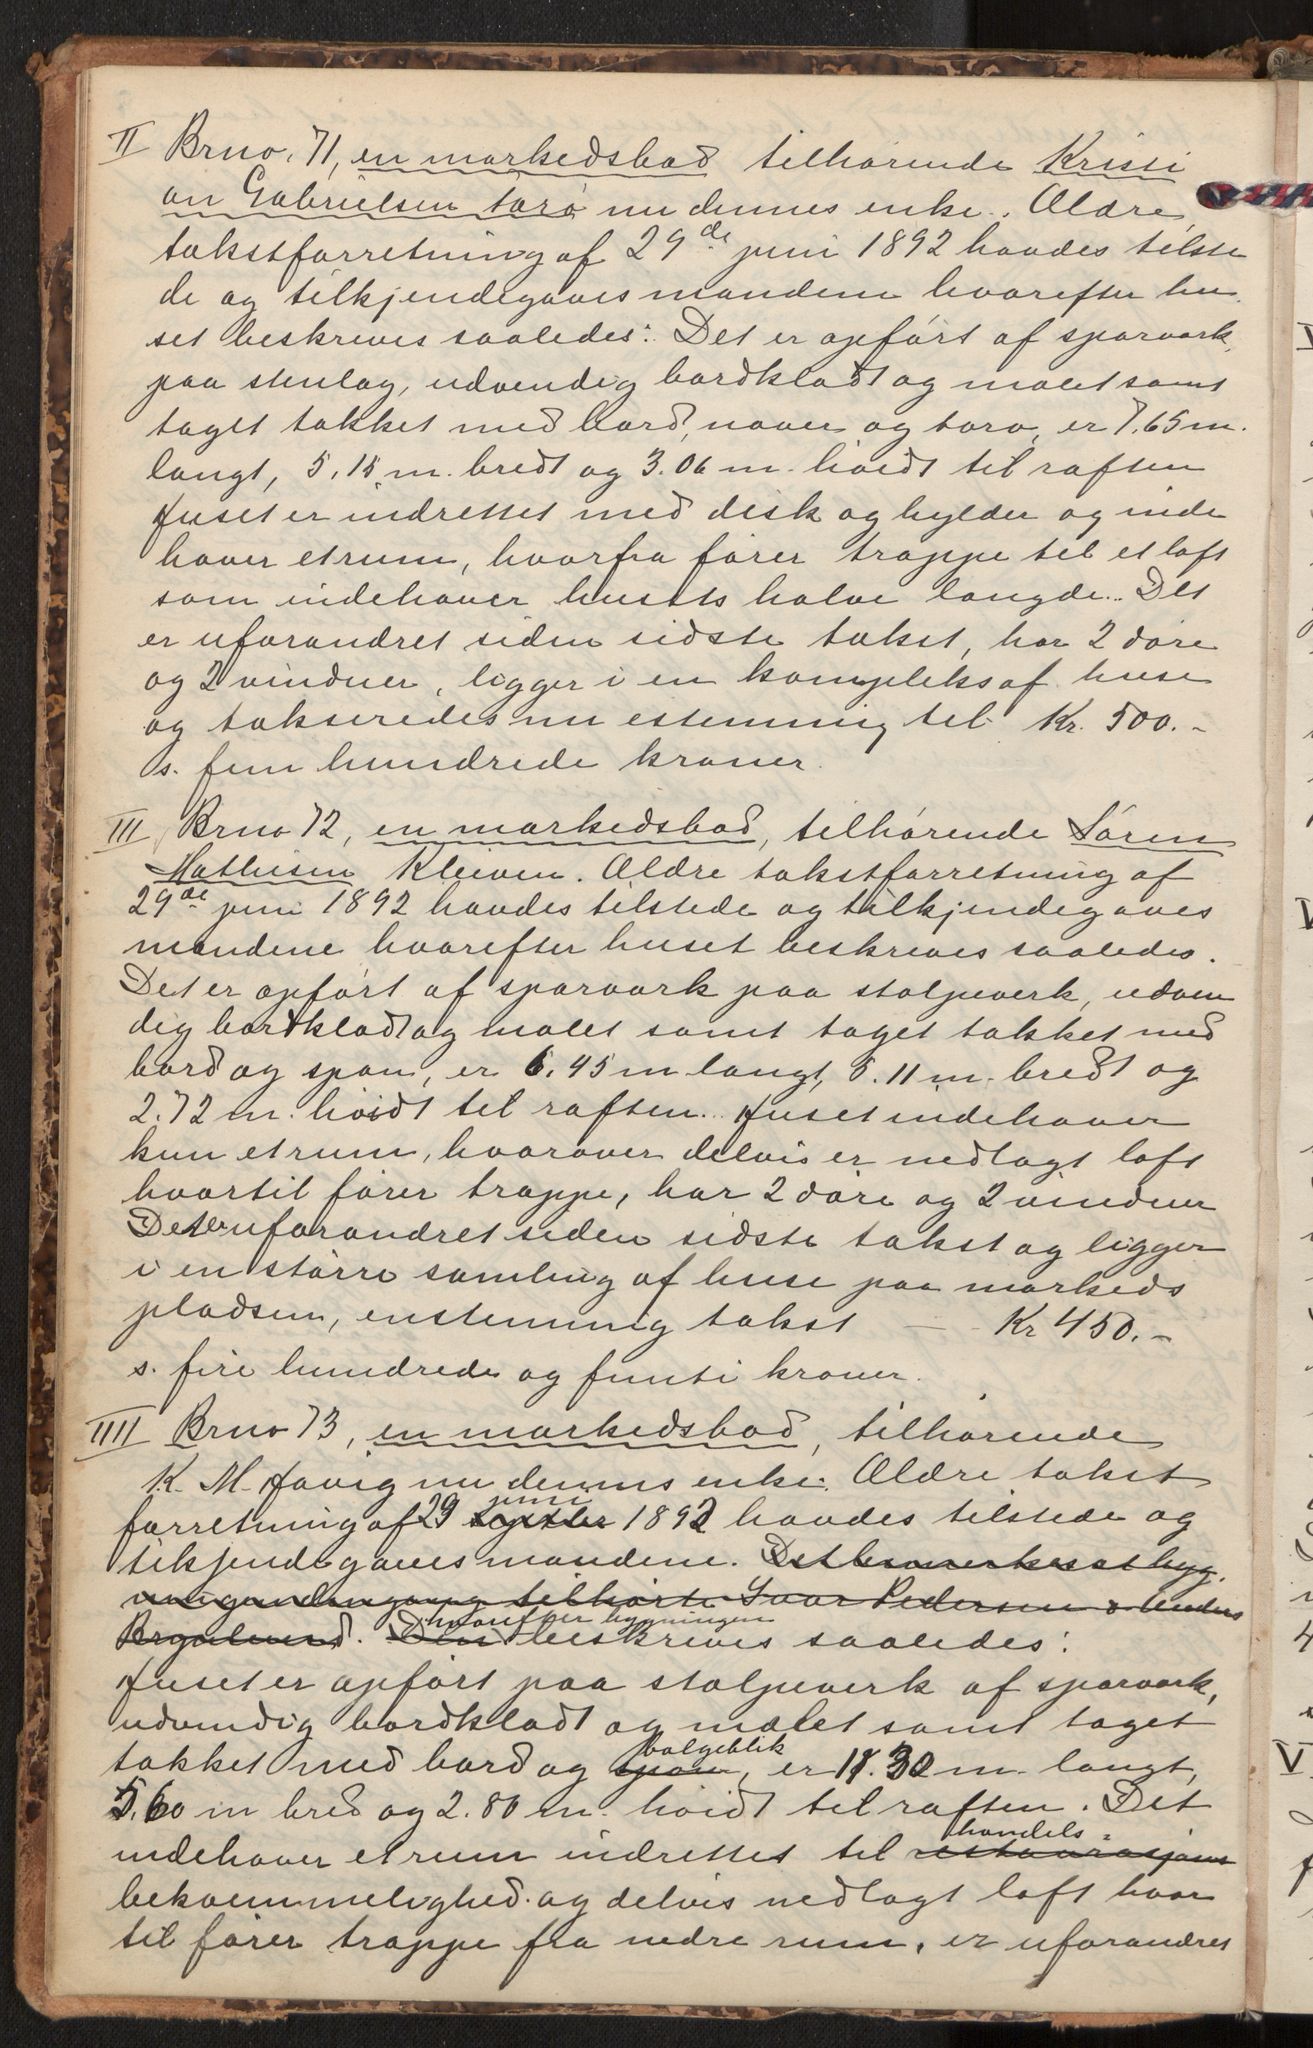 II Brno. 71, en markedsbod tilhørende Kristi
an Gabrielsen Torø nu dennes enke. Ældre
takstforretning af 29de juni 1892 havdes tilste
de og tilkjendegaves mændene hvorefter hu
set beskrives saaledes: Det er opført af sparværk
paa stenlag, udvendig bordklædt og malet samt
taget tækket med bord, næver og torv, er 7.65 m.
langt, 5.15 m. bredt og 3.06 m. høidt til raften
Huset er indrettet med disk og hylder og inde
haver et rum, hvorfra fører trappe til et loft
som indehaver husets halve længde. Det
er uforandret siden sidste takst, har 2 døre
og 2 vinduer, ligger i en kompleks af huse
og takseredes nu estemmig til Kr. 500.-
s. fem hundrede kroner.
III Brno 72, en markedsbod, tilhørende Søren
Mathisen Kleiven. Ældre takstforretning af
29de juni 1892 havdes tilstede og tilkjendegaves
mændene hvorefter huset beskrives saaledes.
Det er opført af sparværk paa stolpeverk, udven
dig bordklædt og malet samt taget tækket med
bord og spon, er 6.45 m langt, 5.11 m. bredt og
2.72 m. høidt til raften. Huset indehaver
kun et rum, hvorover delvis er nedlagt loft
hvortil fører trappe, har 2 døre og 2 vinduer
Det er uforandret siden sidste takst og ligger
i en større samling af huse paa markeds
pladsen, enstemmig takst — Kr 450.-
s. fire hundrede og femti kroner.
IIII Brno 73, en markedsbod, tilhørende
K. M. Høvig nu dennes enke. Ældre takst
forretning af 29 juni 1892 havdes tilstede og
tilkjendegaves mændene. Det bemerkes at byg
ningen dengang tilhørte Ivar Pedersen & Anders
hvorefter bygningen beskrives saaledes:
Huset er opført paa stolpeverk af sparværk,
udvendig bordklædt og malet samt taget
tækket med bord og spon bølgeblik, er 11.30 m. langt,
5.60 m bred og 2.80 m. høidt til raften. Det
indehaver et rum indrettet til restaurasjons handels-
bekvemmelighed og delvis nedlagt loft hvor
til fører trappe fra nedre rum, er uforandret